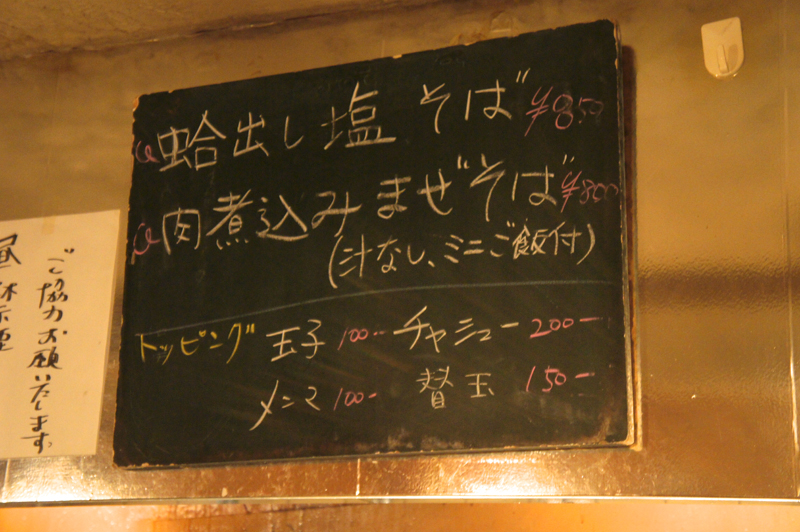 蛤出し塩そば ¥850
肉煮込みまぜそば ¥800
(汁なし、ミニご飯付)
トッピング 玉子 100- チャーシュー 200-
メンマ 100- 替玉 150-
昼休禁煙
ご協力お願いたします。